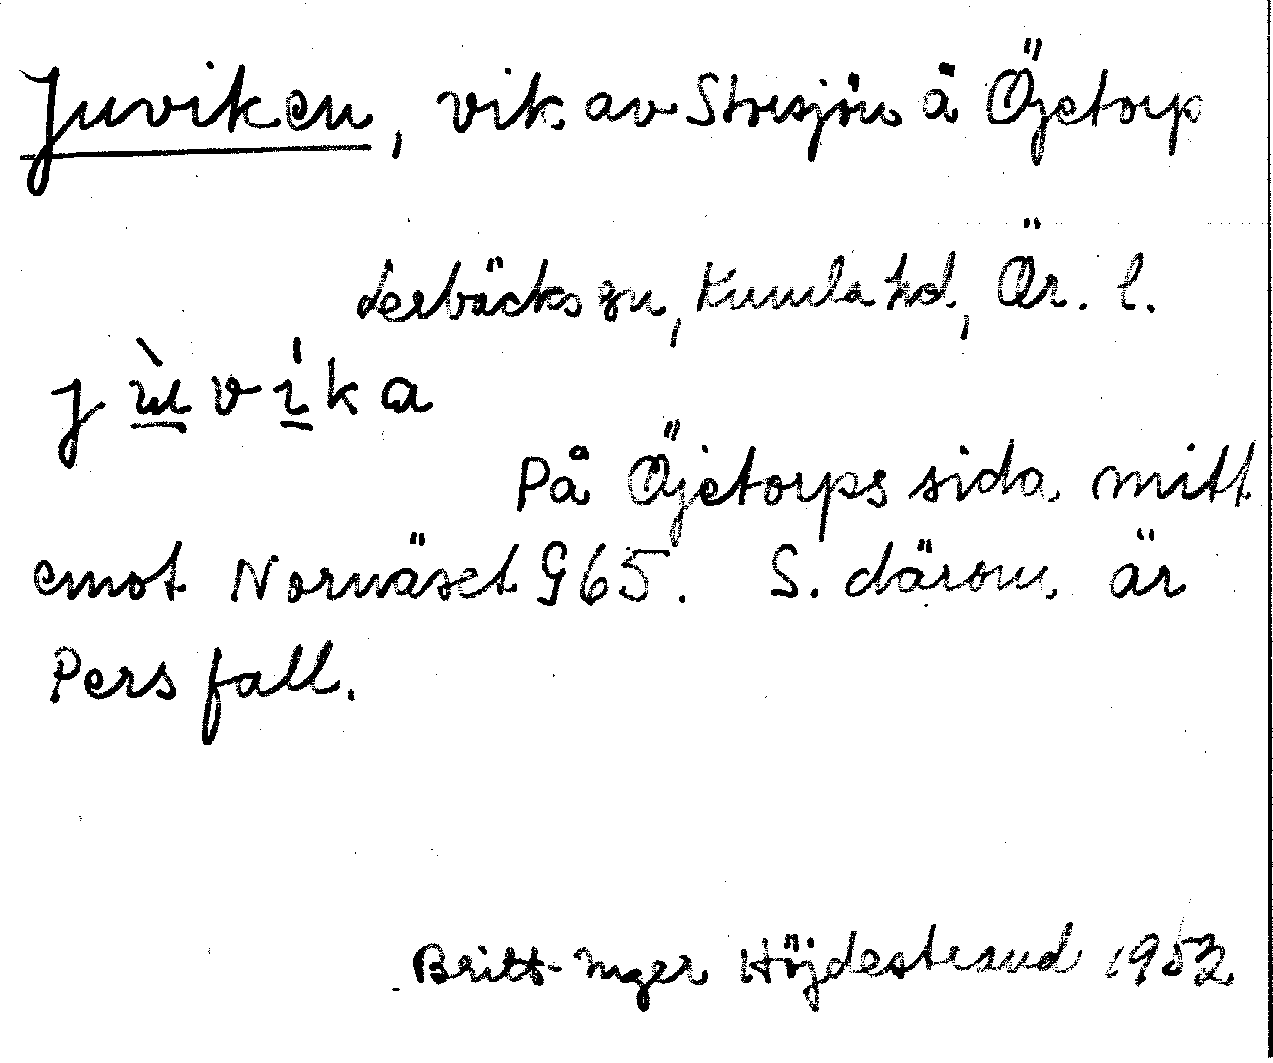 Juviken, vik av Storsjön å Öjetorp
Lerbäcks sn, Kumla hd, Ör. l.
jùvíka
På Öjetorps sida mitt
emot Nornäset 965. S. därom är
Pers fall.
Britt-Inger Höjdestrand 1952